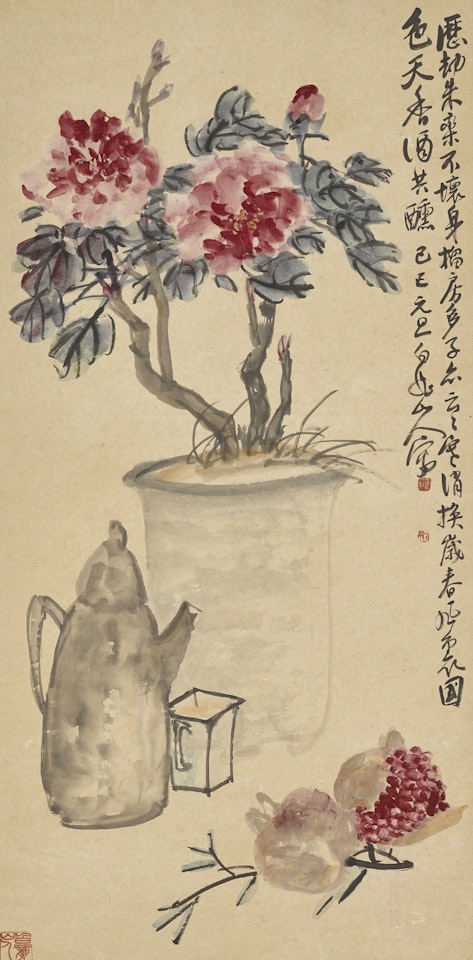 歷劫朱不壞身榴房多子亦云云寒消換歲春花國
色天香酒共醺 己巳元旦白龍山人寫